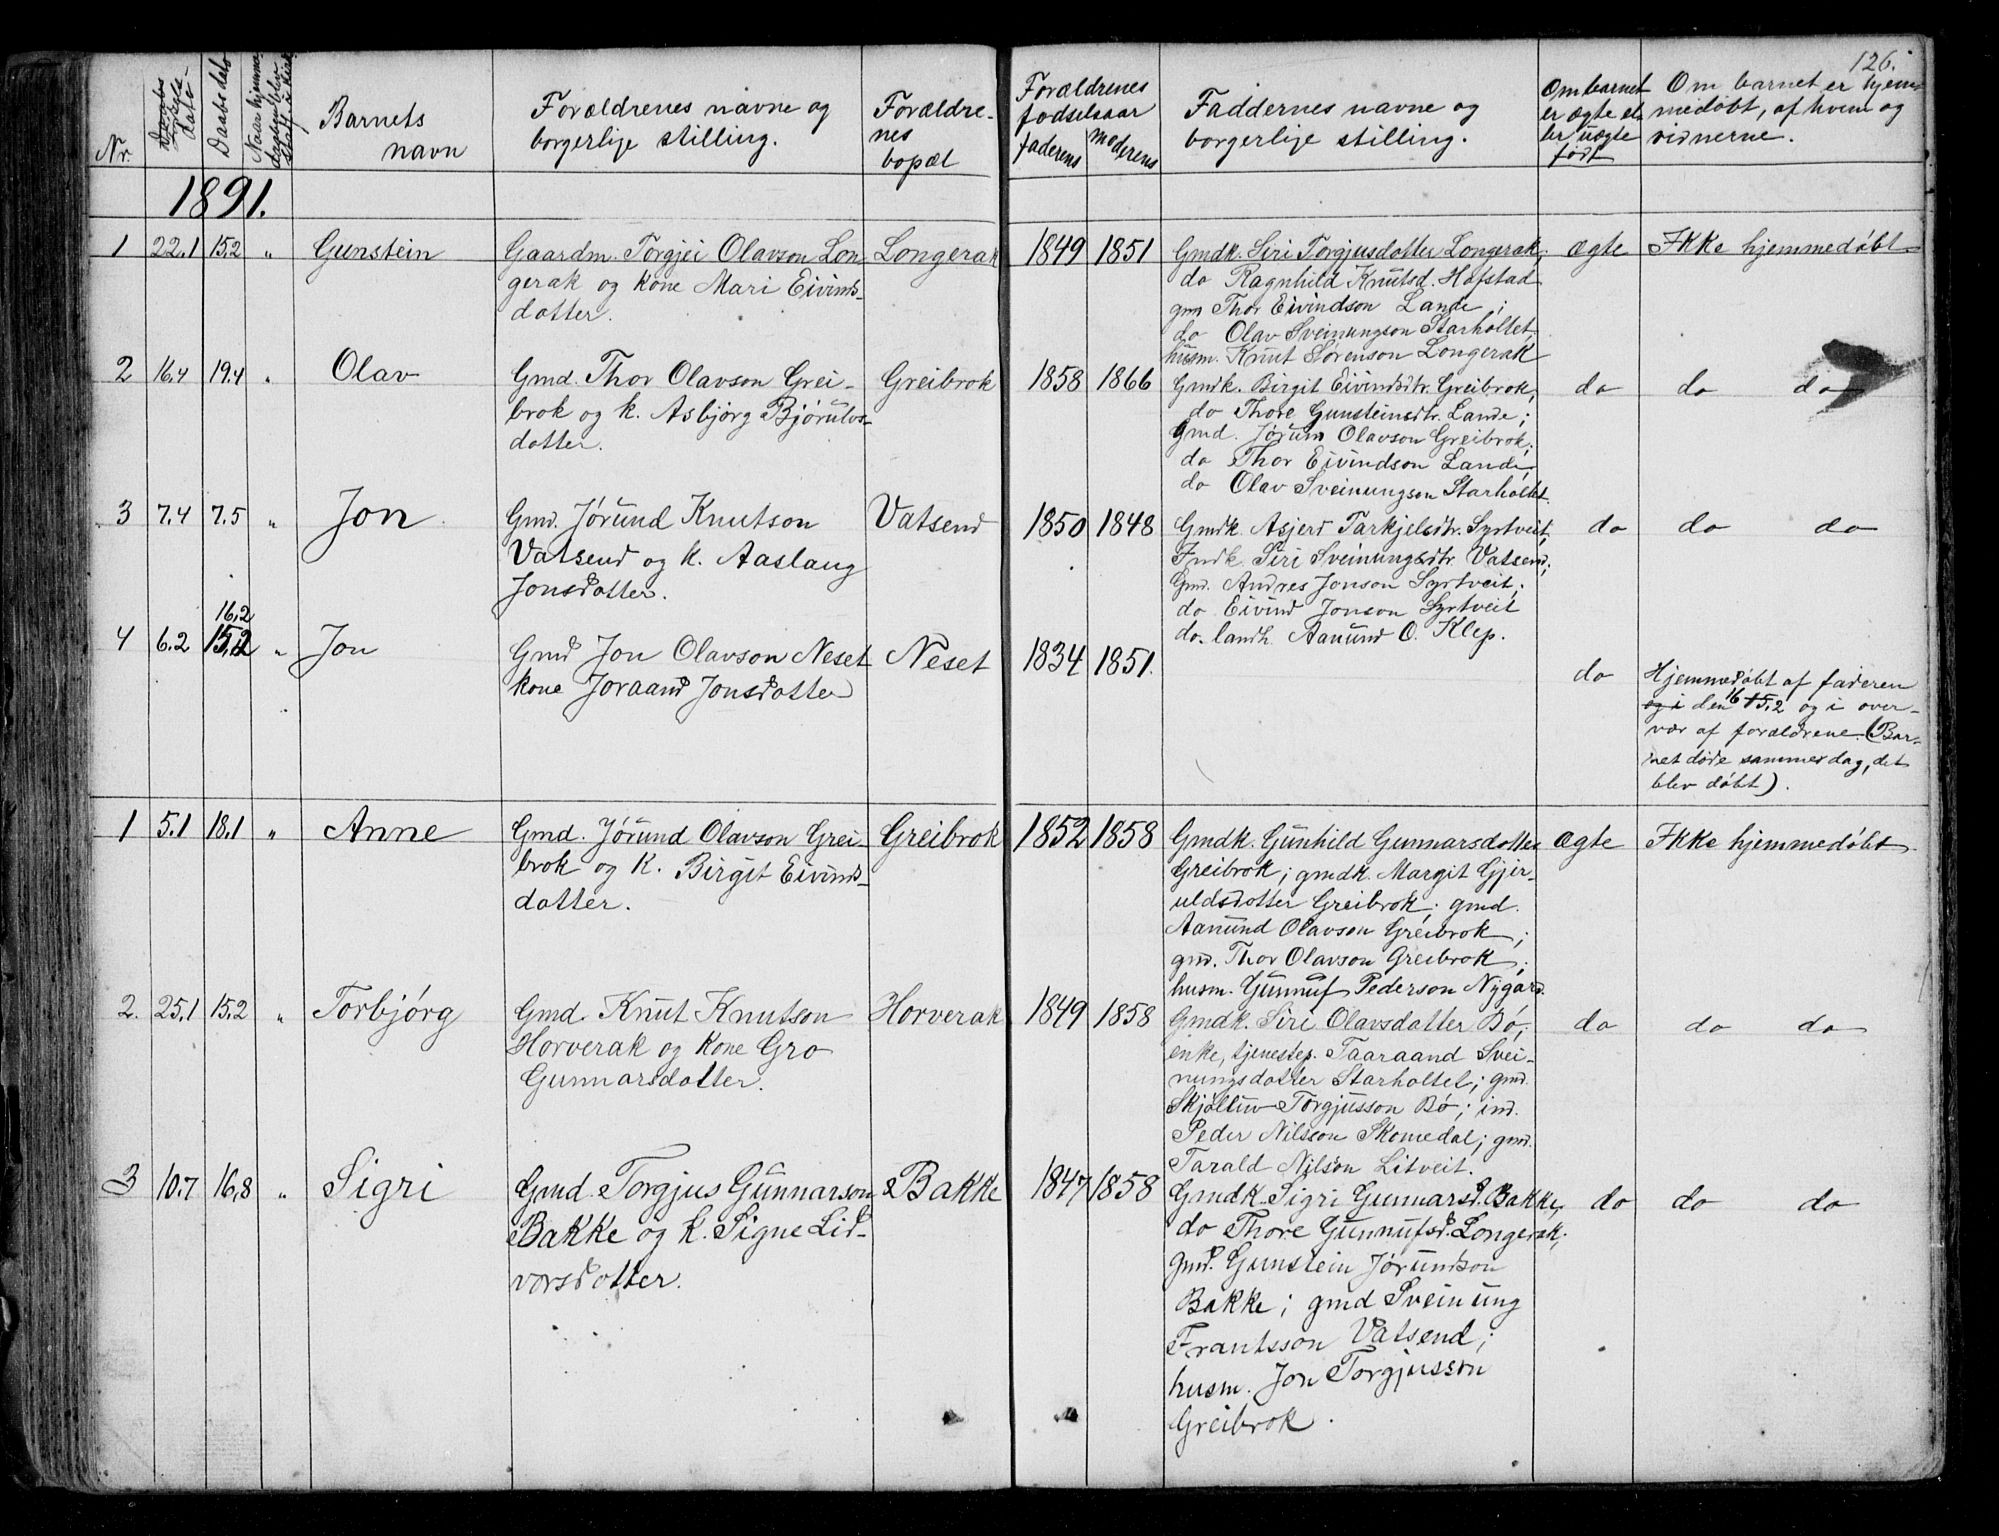 126.
Nr.
Fødsels-
dato
Daabsdato
Barnets
navn
Forældrenes navne og
borgerlige stilling.
Forældre-
nes
bopæl
Forældrenes
fødselsaar
faderens
moderens
Faddernes navne og
borgerlige stilling.
Om barnet
er ægte el-
ler uægte
født
Om barnet er hjem-
medøbt, af hvem og
vidnerne.
1891.
1 22.1 15.2 " Gunstein
Gaardm. Torgjei Olavson Lon-
gerak og kone Mari Eivinds-
dotter.
Longerak
1849 1851
Gmdk. Siri Torgjusdotter Longerak,
do Ragnhild Knutsd. Hofstad
gm Thor Eivindson Lande;
do Olav Sveinungson Starholtet,
husm. Knut Sørenson Longerak
ægte
Ikke hjemmedøbt
2 16.4 19.4 " Olav
Gmd. Thor Olavson Grei-
brok og k. Asbjørg Bjørulvs-
dotter.
Greibrok
1858 1866
Gmdk. Birgit Eivindsdtr. Greibrok,
do Thore Gunsteinsdtr. Lande;
Gmd. Jørun Olavson Greibrok;
do Thor Eivindson Lande,
do Olav Sveinungson Starholtet.
do
do do
3 7.4 7.5 " Jon
Gmd. Jørund Knutson
Vatsend og k. Aaslaug
Jonsdotter.
Vatsend
1850 1848
Gmdk. Asjerd Tarkjelsdtr. Syrtveit,
Indk. Siri Sveinungsdtr. Vatsend;
Gmd. Andres Jonson Syrtveit;
do Eivind Jonson Syrtveit
do. landh. Aanund O. Klep.
do
do do
16.2
4 6.2 15.2 " Jon
Gmd Jon Olavson Neset
kone Joraand Jonsdotter
Neset
1834 1851.
do
Hjemmedøbt af faderen
og i den 16 15.2 og i over-
vær af forældrene. (Bar-
net døde sammesdag, det
blev døbt).
1 5.1 18.1 " Anne
Gmd. Jørund Olavson Grei-
brok og K. Birgit Eivinds-
dotter.
Greibrok
1852 1858
Gmdk. Gunhild Gunnarsdotter
Greibrok; gmdk. Margit Gjer-
uldsdotter Greibrok; gmd.
Aanund Olavson Greibrok;
gmd. Thor Olavson Greibrok;
husm. Gunnuf Pederson Nygard.
ægte
Ikke hjemmedøbt
2. 25.1 15.2 " Torbjørg
Gmd. Knut Knutson
Horverak og kone Gro
Gunnarsdotter.
Horverak
1849 1858
Gmdk. Siri Olavsdotter Bø,
enke, tjenestep. Taaraand Svei-
nungsdotter Starholtet; gmd.
Skjøltuv Torgjusson Bø; ind.
Peder Nilsson Skomedal; gmd.
Tarald Nilson Litveit.
do
do do
3 10.7 16.8 " Sigri
Gmd. Torgjus Gunnarson
Bakke og k. Signe Lid-
vorsdotter.
Bakke
1847 1858
Gmdk. Sigri Gunnarsd. Bakke,
do Thore Gunnufsd. Longerak;
gmd. Gunstein Jørundson
Bakke; gmd Sveinung
Frantsson Vatsend;
husm. Jon Torgjusson
Greibrok.
do
do do